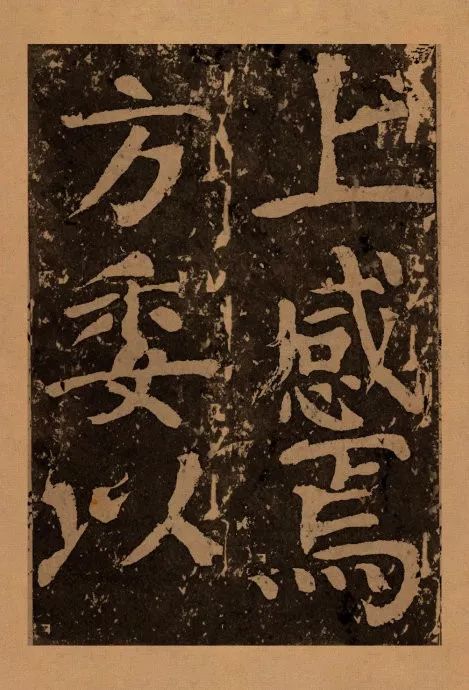 上感焉
方委以